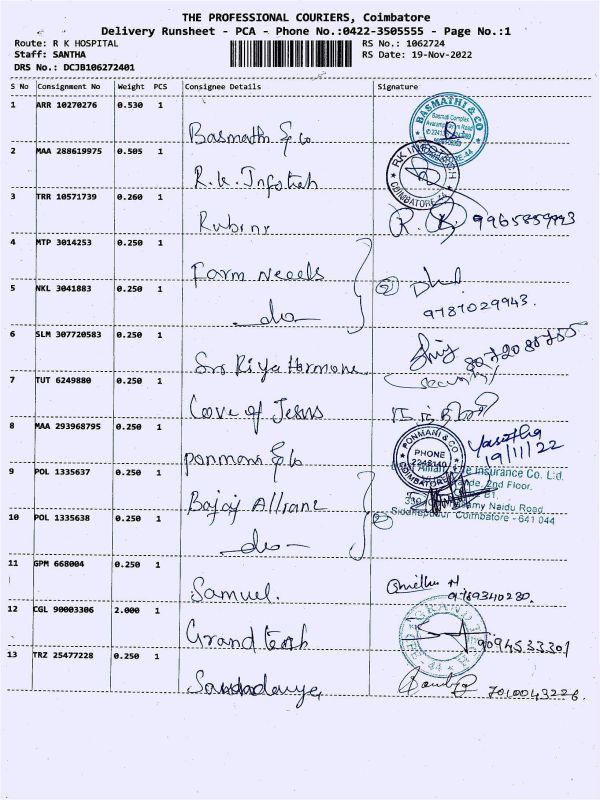 THE PROFESSIONAL COURIERS, Coimbatore
Delivery Runsheet - PCA - Phone No.:0422-3505555 - Page No.:1
Route: R K HOSPITAL RS No.: 1062724
Staff: SANTHA RS Date: 19-Nov-2022
DRS No.: DCJB106272401
S No Consignment No Weight PCS Consignee Details Signature
1 ARR 10270276 0.530 1
BASMATHI & CO
Basmathi & Co
2 MAA 288619975 0.505 1
RK INFOTECH
COIMBATORE-44
R.K. Infotech
3 TRR 10571739 0.260 1
Rubini R. K. 9965859943
4 MTP 3014253 0.250 1
Farm needs
5 NKL 3041883 0.250 1 2
do 9787029943.
6 SLM 307720583 0.250 1
Sri Riya Harmone
Security
7 TUT 6249880 0.250 1
Love of Jesus
8 MAA 293968795 0.250 1
PONMANI & CO
PHONE
COIMBATORE
19/11/22
Ponmani & Co
9 POL 1335637 0.250 1
Insurance Co. Ltd.
2nd Floor,
Bajaj Allianc
Naidu Road
10 POL 1335638 0.250 1 2
Coimbatore - 641 044
do
11 GPM 668004 0.250 1
Samuel. 9789340280.
12 CGL 90003306 2.000 1
GRAND
Grand Tech 9094533301
13 TRZ 25477228 0.250 1
7010043226.